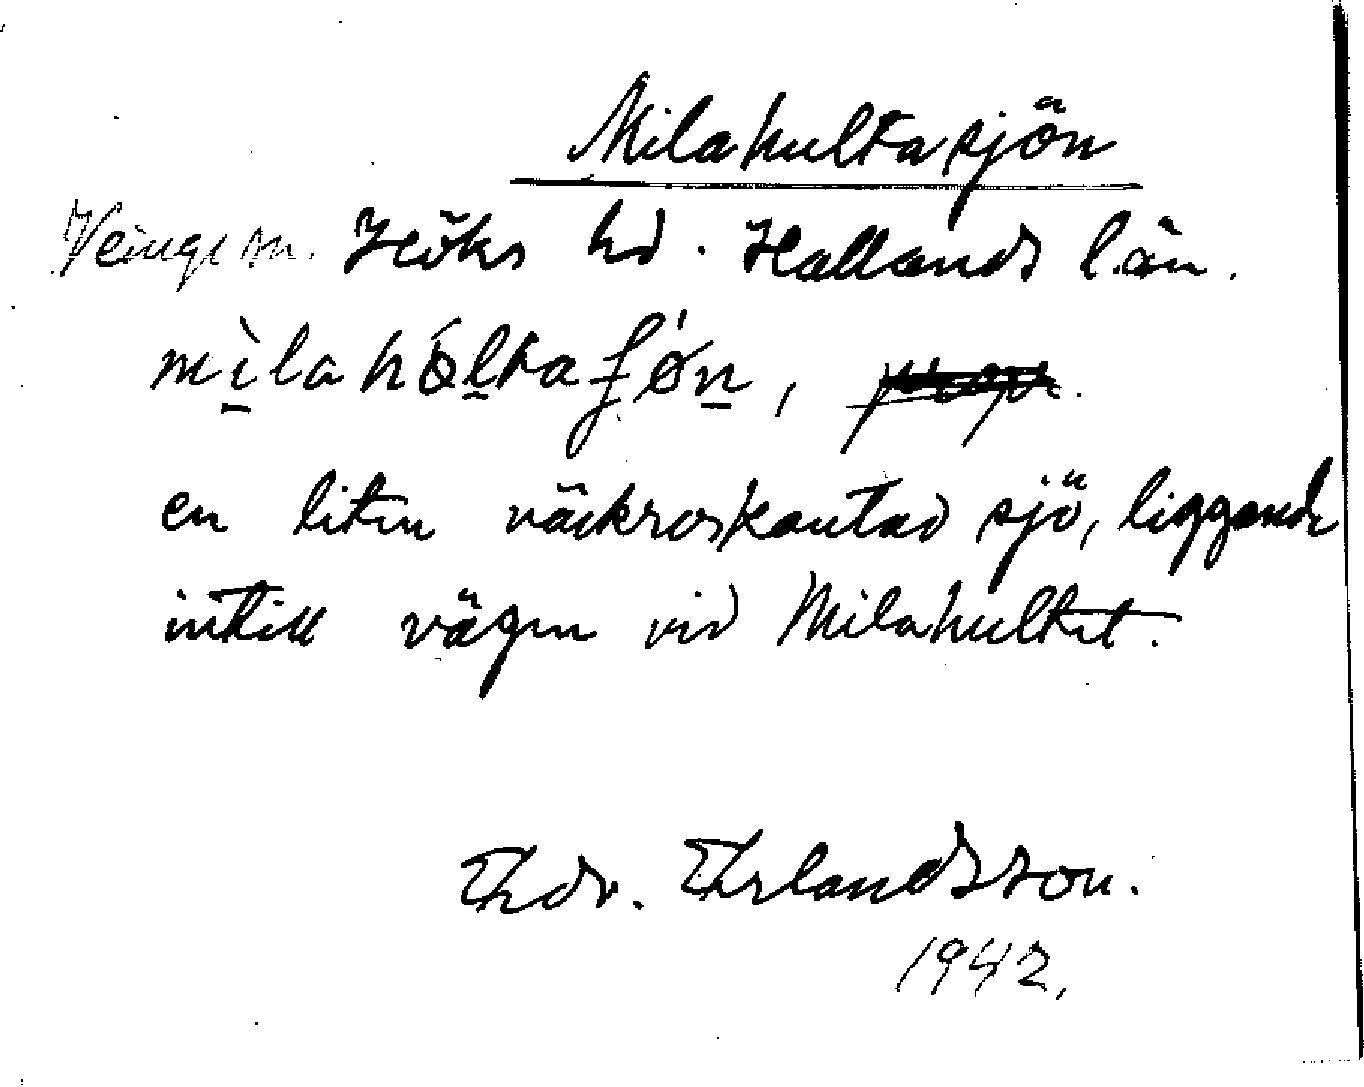 Milahultasjön
Veinge sn. Höks hd. Hallands län.
mìlahóltaʃǿn,
en liten näckroskantad sjö, liggande
intill vägen vid Milahultet.
Edv. Erlandsson.
1942.